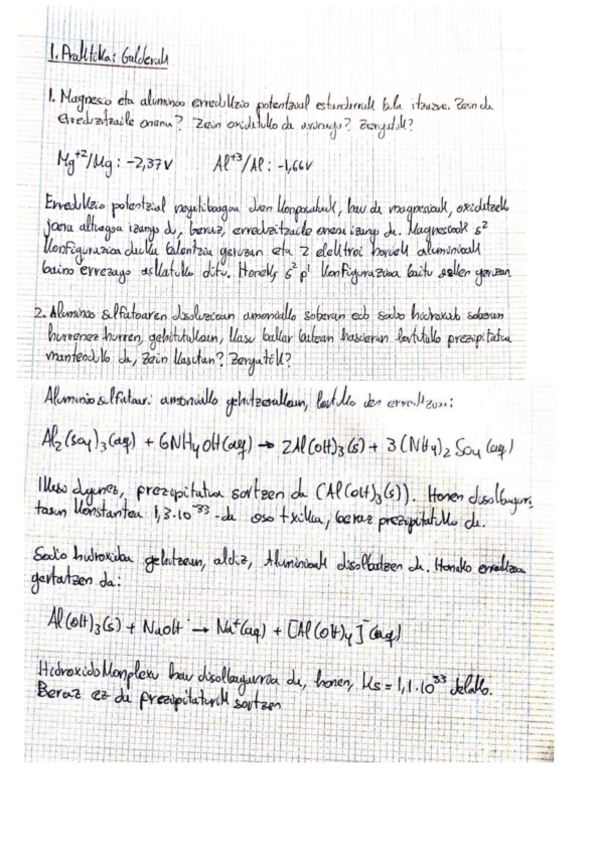 1. Praktika: Galderak
1. Magnesio eta aluminio erredukzio potentzial estandarrak bila itzazue. Zein da
erreduzitzaile onena? Zein oxidatuko da errazago? Zergatik?
Mg⁺²/Mg: -2,37V Al⁺³/Al: -1,66V
Erredukzio potentzial negatiboagoa duen konposatuak, hau da magnesioak, oxidatzeko
joera altuagoa izango du, beraz, erreduzitzaile onena izango da. Magnesioak s²
konfigurazioa dauka balentzia geruzan eta 2 elektroi horiek aluminioak
baino errezago askatuko ditu. Honek, s² p¹ konfigurazioa baitu azken geruzan
2. Aluminio sulfatoaren disoluzioan amoniako soberan edo sodio hidroxido soberan
hurrenez hurren, gehitutakoan, kasu bakar batean hasieran lortutako prezipitatua
mantenduko da, Zein kasutan? Zergatik?
Aluminio sulfatoari amoniako gehitzerakoan, lortuko den erreakzioa:
Al₂(SO₄)₃(aq) + 6NH₄OH(aq) → 2Al(OH)₃(s) + 3(NH₄)₂SO₄(aq)
Ikusi dugunez, prezipitatua sortzen da (Al(OH)₃(s)). Honen disolbagarri
tasun konstantea 1,3·10⁻³³-da oso txikia, beraz prezipitatuko da.
Sodio hidroxidoa gehitzean, aldiz, Aluminioak disolbatzen da. Honako erreakzioa
gertatzen da:
Al(OH)₃(s) + NaOH → Na⁺(aq) + [Al(OH)₄]⁻(aq)
Hidroxido konplexu hau disolbagarria da, honen, Ks = 1,1·10³³ delako.
Beraz ez da prezipitaturik sortzen